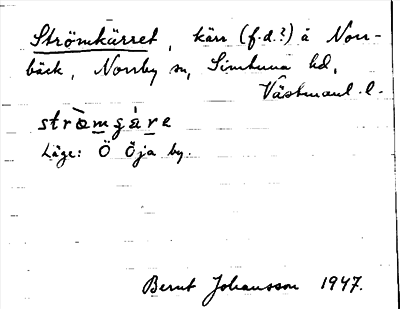 Strömkärret, kärr (f.d.?) å Norr-
bäck, Norrby sn, Simtuna hd,
Västmanl. l.
stròmçàre
Läge: Ö Öja by.
Bernt Johansson 1947.